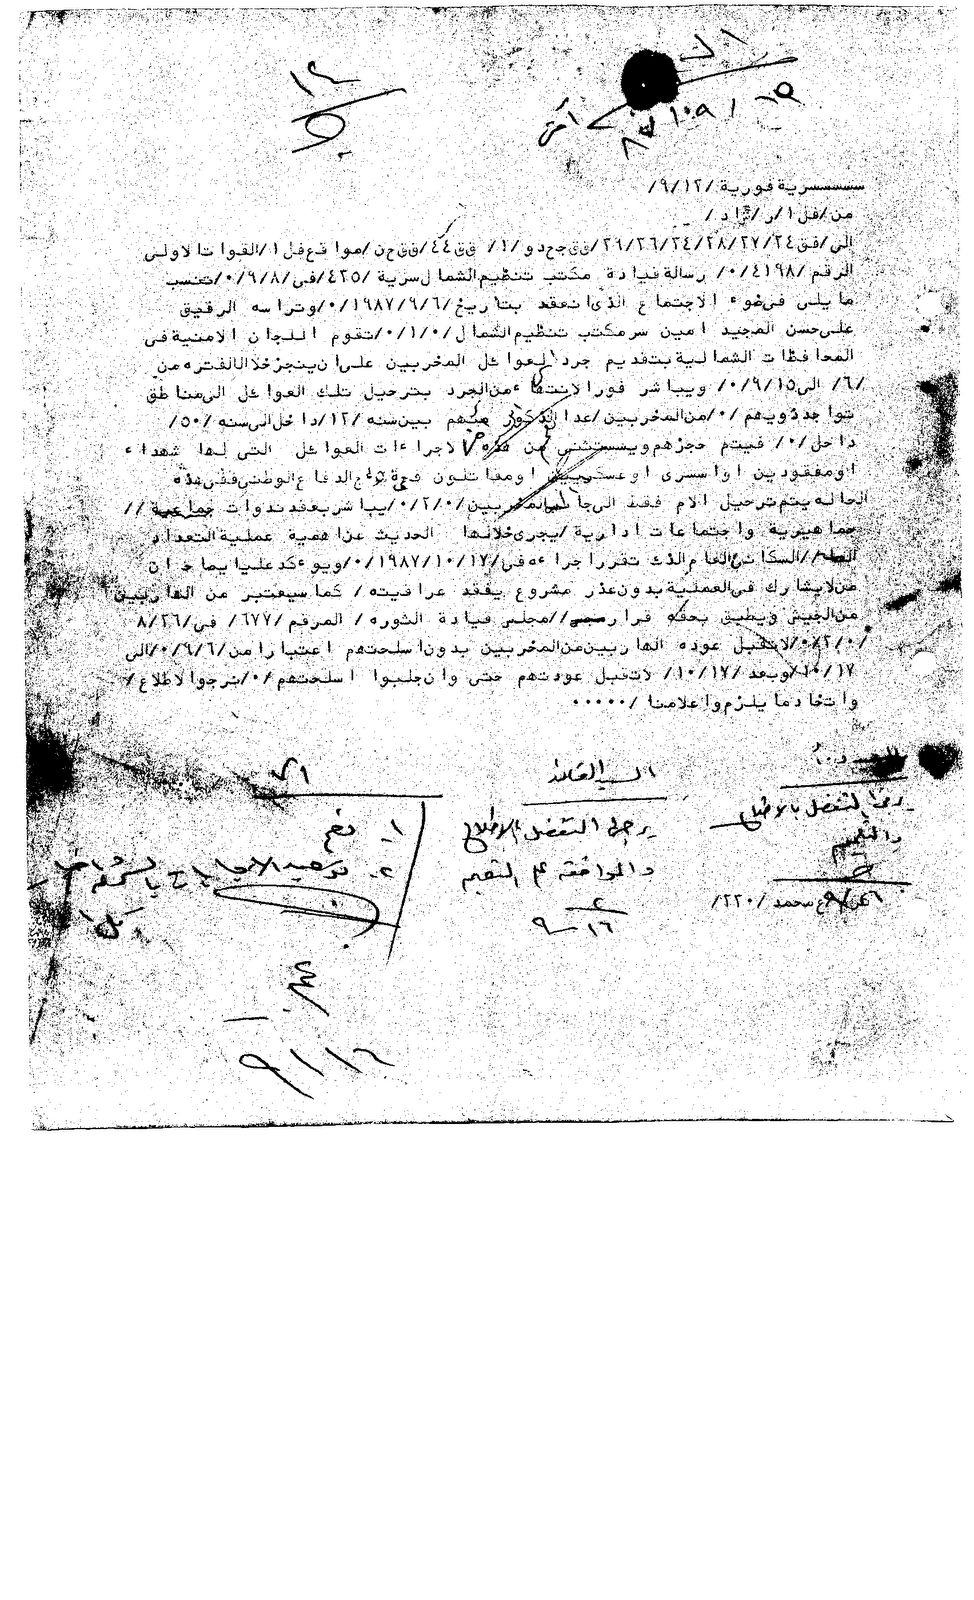 ١٤
سسسسسرية فورية /٩/١٢/
من/فل١/ر/
الى/فق٢٤/٢٧/٢٨/٢٤/٢٦/٢٦/ق ق جحدو/١/ ق ق ٤٤/ق ق حن/موا قع فل١/القوات الاولى
الرقم /٤١٩٨/٠/ رسالة قيادة مكتب تنظيم الشمال سرية /٤٢٥/في/٠/٩/٨/تنسب
ما يلي في ضوء الاجتماع الذي انعقد بتاريخ/١٩٨٧/٩/٦/٠/وتراسه الرفيق
على حسن المجيد امين سر مكتب تنظيم الشمال/٠/١/٠/تقوم اللجان الامنية في
المحافظات الشمالية بتقديم جرد لعوائل المخربين على ان ينجز خلال الفتره من
/٦/ الى ٩/١٥/٠/ ويباشر فورا لانتهاء من الجرد بترحيل تلك العوائل الى مناطق
تواجد ذويهم /٠/من المخربين/عدا الذكور منهم بين سنه /١٢/داخل الى سنه /٥٠/
داخل/٠/ فيتم حجزهم ويستثنى من هذه الاجراءات العوائل التي لها شهداء
او مفقودين او اسرى او عسكريين او مقاتلون الدفاع الوطني ففي هذه
الحاله يتم ترحيل الام فقط الى جانب المخربين/٠/٢/٠/يباشر بعقد ندوات //
جماهيرية واجتماعات ادارية/يجرى خلالها الحديث عن اهمية عملية التعداد
//السكاني العام الذى تقرر اجراءه في/١٩٨٧/١٠/١٧/٠/ويوءكد عليا بما ان
من لايشارك في العملية بدون عذر مشروع يفقد عراقيته/ كما سيعتبر من الهاربين
من الجيش ويطبق بحقه قرار //مجلس قيادة الثوره/ المرقم /٦٧٧/ في/٨/٢٦
/٠/٢/٠/لاتقبل عوده الهاربين من المخربين بدون اسلحتهم اعتبارا من/٠/٩/٦/الى
١٠/١٧/وبعد /١٠/١٧/ لاتقبل عودتهم حتى وان جلبوا اسلحتهم/٠/نرجوا لاطلاع/
واتخاذ ما يلزم واعلامنا /.....
السيد القائد
يرجى التفضل بالاطلاع
والموافقة على التعميم
٩/١٦
يرجى التفضل بالاطلاع
والتعميم
محمد /٢٢٠/
١- نعم
٢-
٩/١٦